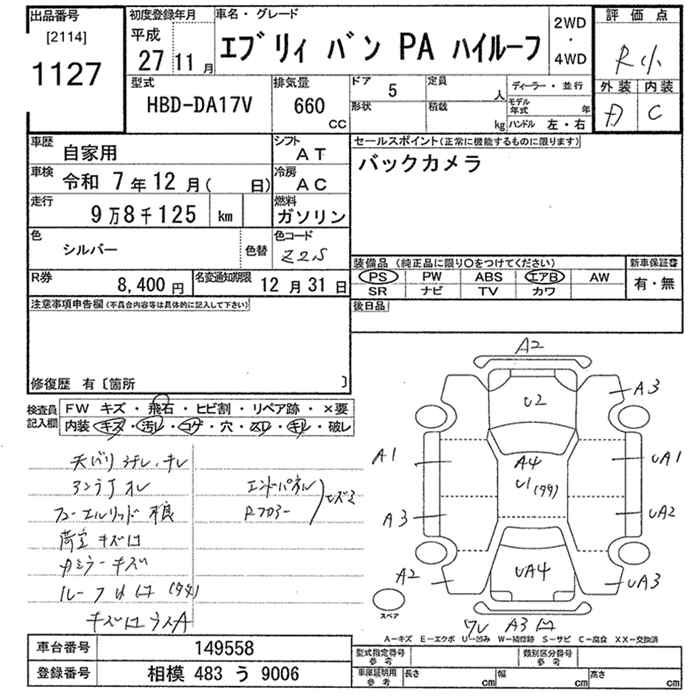 出品番号
[2114]
1127
初度登録年月
平成
27 11 月
車名・グレード
エブリィ バン PA ハイルーフ
2WD
・
4WD
評価点
R
外装 内装
C
型式
HBD-DA17V
排気量
660
CC
ドア 5
形状
定員
人
積載
kg
ディーラー・並行
モデル年式 年
ハンドル 左・右
車歴
自家用
シフト
AT
車検
令和 7 年 12 月( 日)
冷房
AC
走行
9 万 8 千 125 km
燃料
ガソリン
色
シルバー
色替
色コード
Z2S
R券
8,400 円
名変通知期限
12 月 31 日
セールスポイント(正常に機能するものに限ります)
バックカメラ
装備品 (純正品に限り○をつけてください)
PS PW ABS エアB AW
SR ナビ TV カワ
新車保証書
有・無
後日品
注意事項申告欄(不具合内容等は具体的に記入して下さい)
修復歴 有〔箇所 〕
検査員記入欄
FW キズ・飛石・ヒビ割・リペア跡・×要
内装 キズ・汚レ・コゲ・穴・スレ・キレ・破レ
天バリ 汚レ、キレ
アンテナ オレ
フューエルリッド
荷室 キズ凹
キズ
ルーフ
キズ凹 ラスA
エンドパネル
Rフロアー
A2
U2
A3
A1
A4
U1
UA1
A3
UA2
A2
UA4
UA3
ワレ A3 凹
スペア
A-キズ E-エクボ U-凹み W-補修跡 S-サビ C-腐食 XX-交換済
車台番号
149558
登録番号
相模 483 う 9006
型式指定番号
参考
類別区分番号
参考
車庫証明用
参考
長さ cm
幅 cm
高さ cm